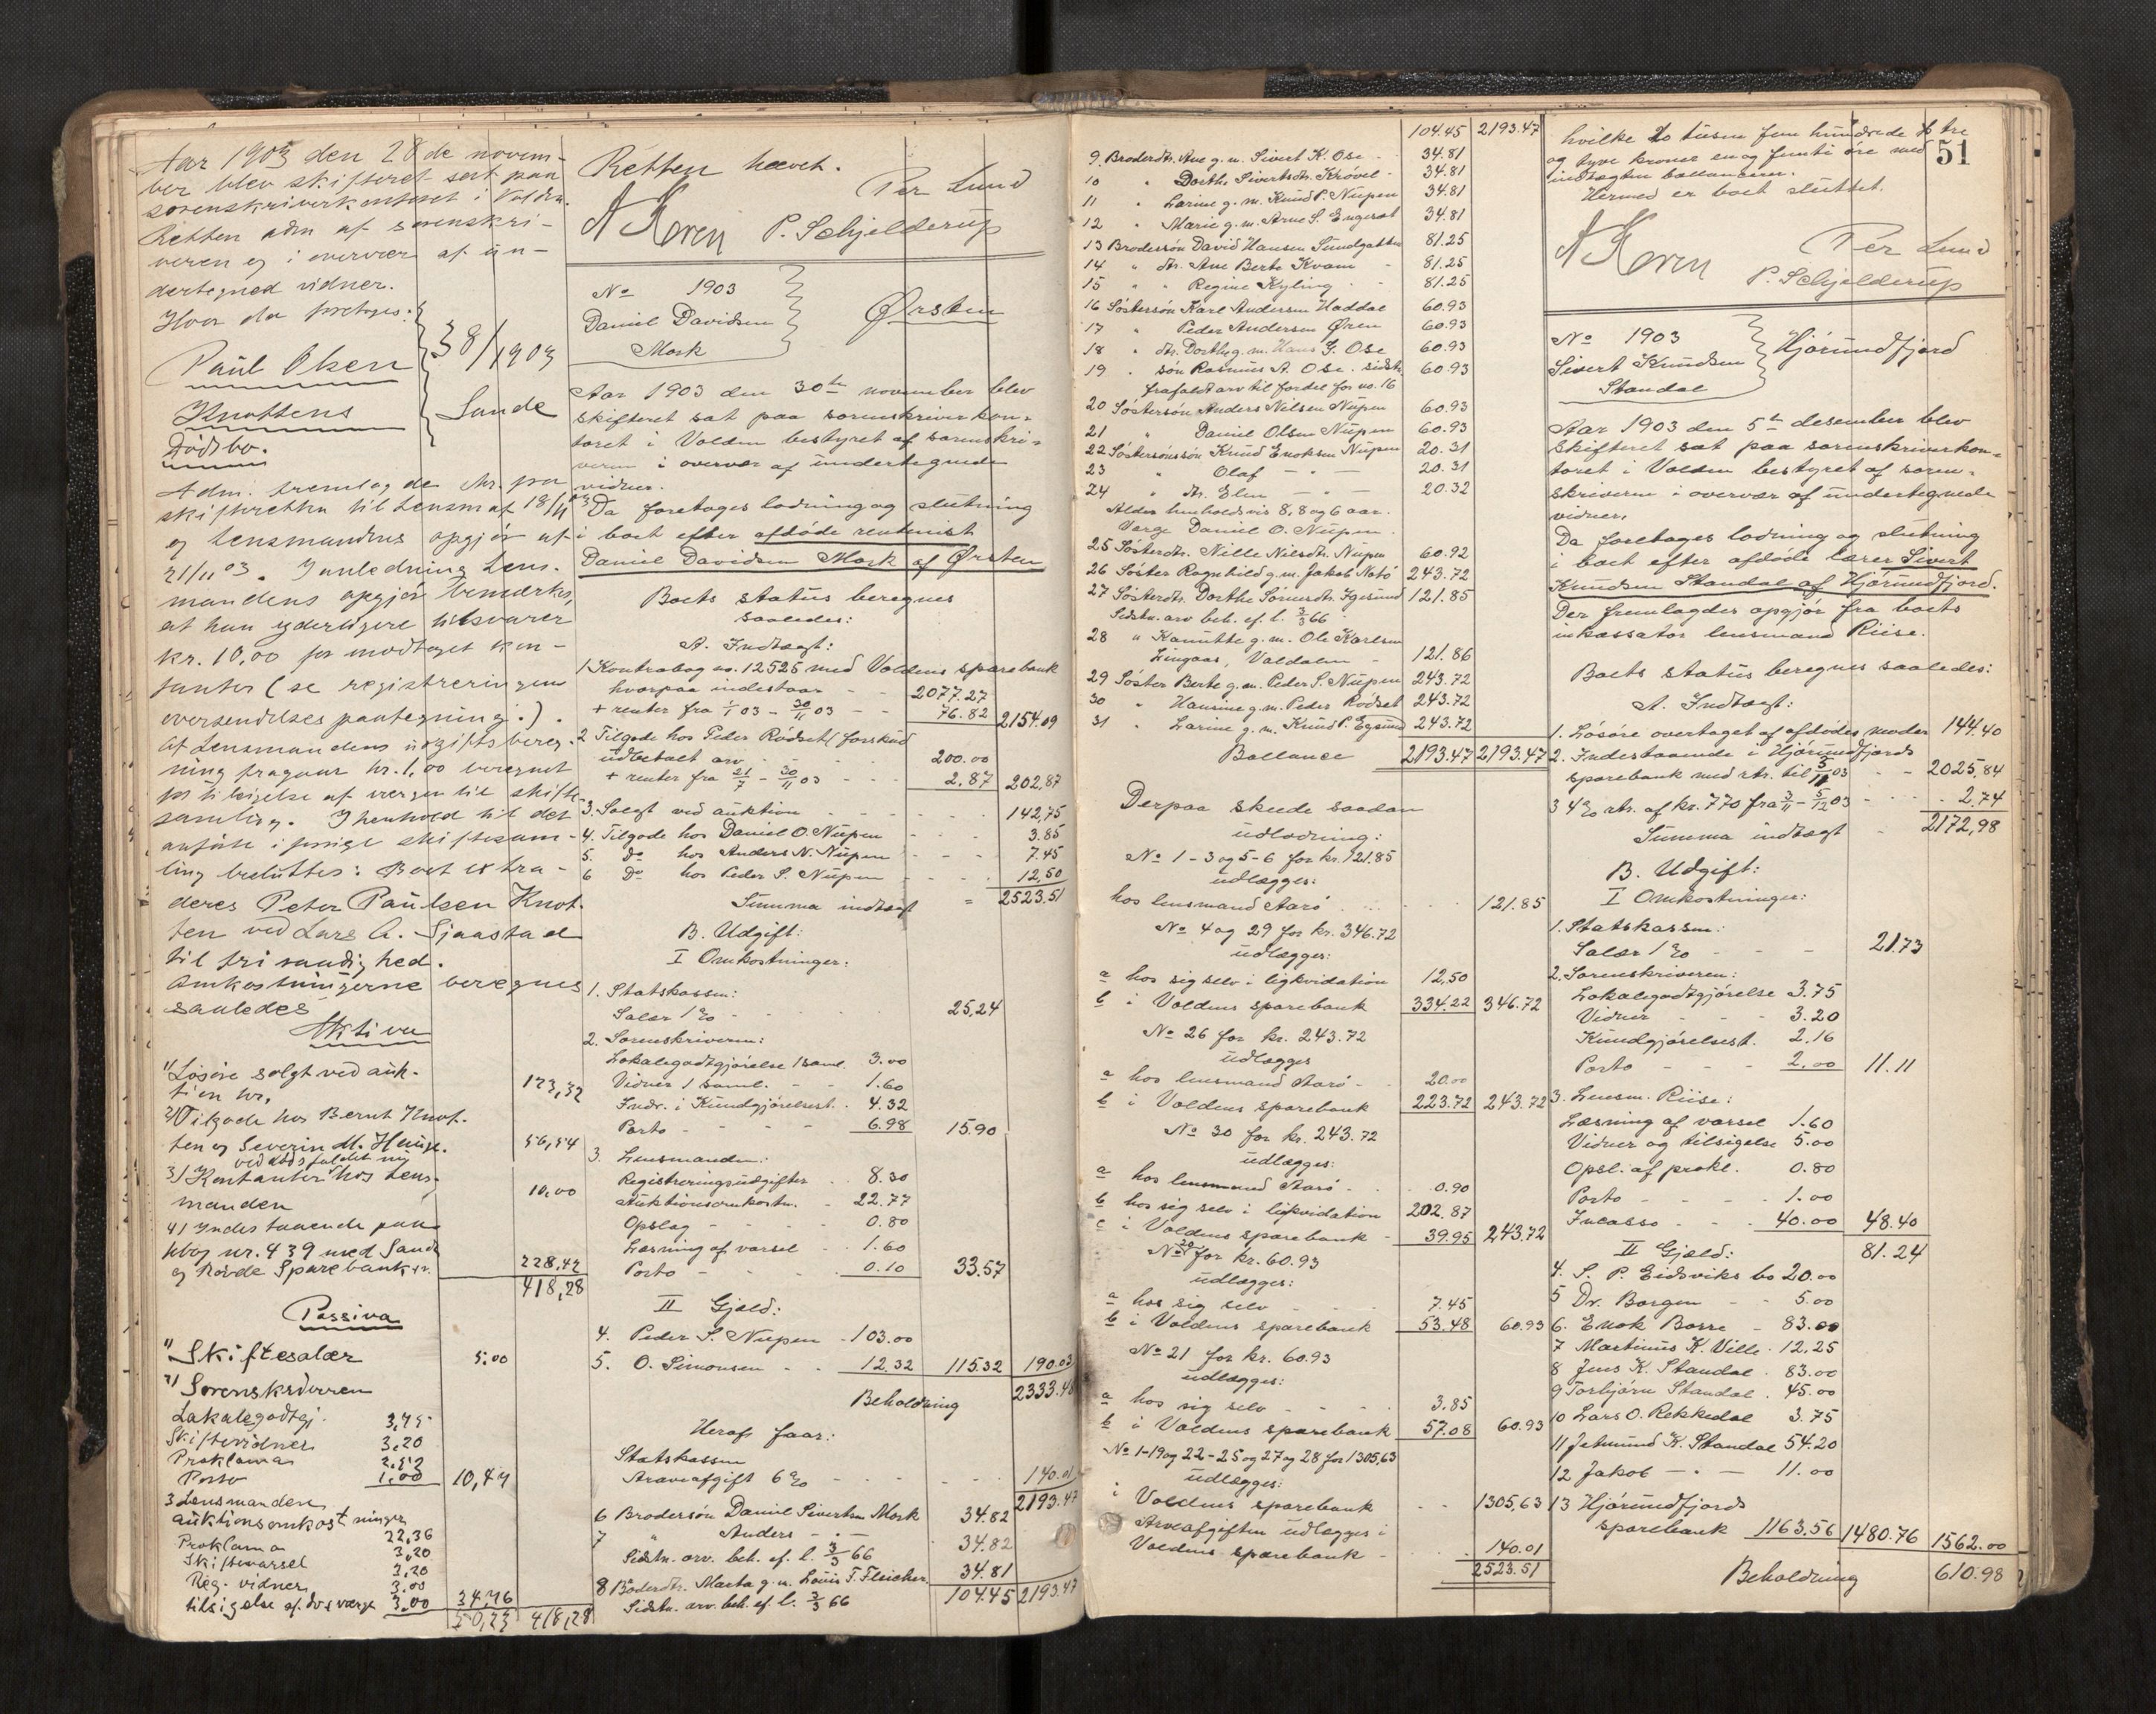 Aar 1903 den 28de novem-
ber blev skifteret sat paa
sorenskriverkontoret i Volden.
Retten adm af sorenskri-
veren og i overvær af un-
dertegned vidner.
Hvor da foretages:
Paul Olsen
38/1903
Knottens
Sande
Dödsbo.
Adm. fremlagde skr. fra
skifteretten til Lensm af 18/11 03
og Lensmandens opgjør af
21/11 03. I anledning Lens-
mandens opgjør bemærkes,
at han yderligere tilsvarer
kr. 10,00 for modtaget kon-
tanter (se registreringen
oversendelsespaategning.).
Af Lensmandens udgiftsbereg-
ning fragaar kr. 1,00 beregnet
for tilsigelse af vergen til skifte-
samling. I henhold til det
anførte i forrige skiftesam-
ling besluttes: Boet extra-
deres Peter Paulsen Knot-
ten ved Lars A. Sjaastad
til fri raadighed.
Omkostningerne beregnes
saaledes
Aktiva
1/ Løsøre solgt ved auk-
tion kr. 123,32
2/ Tilgode hos Bernt Knot-
ten og Severin M. Hauge. 56,54
3/ Kontanter ved dødsfaldet hos Lens-
manden 10,00
4/ Indestaaende paa
kbog nr. 439 med Sande
og Rovde Sparebank kr. 228,42
418,28
Passiva
1/ Skiftesalær 5.00
2/ Sorenskriveren
Lokalegodtgj. 3,75
Skiftevidner 3,20
Proklama 2,52
Porto 1,00 10,47
3 Lensmanden
auktionsomkostninger 22,36
Proklama 3,20
Skiftevarsel 3,20
Reg. vidner 3.00
tilsigelse af dvs værge 3,00 34,76
50,23 418,28
Retten hævet.
A Koren Per Lund
P. Schjelderup
No 1903
Daniel Davidsen
Mork
Ørsten
Aar 1903 den 30te november blev
skifteret sat paa sorenskriverkon-
toret i Volden bestyret af sorenskri-
veren i overvær af undertegnede
vidner.
Da foretages lodning og slutning
i boet efter afdøde rentenist
Daniel Davidsen Mork af Ørsten
Boets status beregnes
saaledes:
A. Indtægt:
1. Kontrabog no. 12525 med Voldens sparebank
hvorpaa indestaar - - 2077.27
+ renter fra 1/1 03 - 30/11 03 - - 76.82 2154.09
2 Tilgode hos Peder Rødset (forskud
udbetalt arv - - - 200.00
+ renter fra 21/7 - 30/11 03 - - - 2.87 202,87
3. Solgt ved auktion - - - 142,75
4. Tilgode hos Daniel O. Nupen - - - 3.85
5. Do hos Anders N. Nupen - - - 7.45
6 Do hos Peder S. Nupen - - - 12,50
Summa indtægt = 2523.51
B. Udgift:
I Omkostninger:
1. Statskassen:
Salær 1 % - - - 25,24
2. Sorenskriveren:
Lokalegodtgjørelse 1 saml. 3.00
Vidner 1 saml. - - 1.60
Indr. i Kundgjørelsest. . 4.32
Porto - - - 6.98 15.90
3. Lensmanden:
Registreringsudgifter - 8.30
Auktionsomkostn. - 22.77
Opslag - - - 0.80
Læsning af varsel - 1.60
Porto - - - 0.10 33.57
II Gjæld:
4. Peder S. Nupen - 103.00
5. O. Simonsen - - 12.32 115.32 190.03
Beholdning 2333.48
Heraf faar:
Statskassen
Arveafgift 6 % - - - 140.01
2193.47
6 Brodersøn Daniel Sivertsen Mork 34.82
7 " Anders - " - 34.82
Sidstn. arv. beh. ef. l. 3/3 66
8 Broderdtr. Marta g. m. Louis T. Fleicher 34.81
Sidstn. arv. beh. ef. l. 3/3 66 104.45 2193.47
104.45 2193.47
9. Broderdtr. Ane g. m. Sivert K. Ose - 34.81
10 " Dorthe Sivertsdtr. Krøvel - 34.81
11 " Larine g. m. Knud P. Nupen 34.81
12 " Marie g. m. Arne S. Engeset 34.81
13 Brodersøn David Hansen Sundgatten 81.25
14 " dtr. Ane Berte Kvam - 81.25
15 " " Regine Kyling - 81.25
16 Søstersøn Karl Andersen Haddal 60.93
17 " Peder Andersen Øren 60.93
18 " dtr. Dorthe g. m. Hans G. Ose 60.93
19 " søn Rasmus A. Ose. sidstn. 60.93
frafaldt arv til fordel for no. 16
20 Søstersøn Anders Nilsen Nupen 60.93
21 " Daniel Olsen Nupen 60.93
22 Søstersønssøn Knud Enoksen Nupen 20.31
23 " Olaf - " - 20.31
24 " dtr. Elen - " - 20.32
Alder henholdsvis 8, 8 og 6 aar.
Verge Daniel O. Nupen.
25 Søsterdtr. Nille Nilsdtr. Nupen 60.92
26 Søster Ragnhild g. m. Jakob Natø 243.72
27 Søsterdtr. Dorthe Sørensdtr. Egesund 121.85
Sidstn. arv beh. ef. l. 3/3 66
28 " Kanutte g. m. Ole Karlsen
Lingaas, Valdalen - 121.86
29 Søster Berte g. m. Peder S. Nupen 243.72
30 " Hansine g. m. Peder Rødset 243.72
31 " Larine g. m. Knud P. Egsund 243.72
Ballance 2193.47 2193.47
Derpaa skede saadan
udlodning:
No 1-3 og 5-6 for kr. 121.85
udlægges:
hos lensmand Aarø - - - 121.85
No 4 og 29 for kr. 346.72
udlægges:
a hos sig selv i ligkvidation 12,50
b i Voldens sparebank 334.22 346.72
No 26 for kr. 243.72
udlægges
a hos lensmand Aarø - - 20.00
b i Voldens sparebank 223.72 243.72
No 30 for kr. 243.72
udlægges:
a hos lensmand Aarø - - 0.90
b hos sig selv i likvidation 202.87
c i Voldens sparebank - 39.95 243.72
No 20 for kr. 60.93
udlægges:
a hos sig selv - - - 7.45
b i Voldens sparebank 53.48 60.93
No 21 for kr. 60.93
udlægges:
a hos sig selv - - - 3.85
b i Voldens sparebank 57.08 60.93
No 1-19 og 22-25 og 27 og 28 for 1305,63
udlægges:
i Voldens sparebank - - 1305,63
Arveafgiften udlægges i
Voldens sparebank - - 140.01
2523.51
51
hvilke to tusen fem hundrede tre
og tyve kroner en og femti øre med
indtægten ballancerer.
Hermed er boet sluttet.
A Koren Per Lund
P. Schjelderup
No 1903
Sivert Knudsen
Standal
Hjørundfjord
Aar 1903 den 5te desember blev
skifteret sat paa sorenskriverkon-
toret i Volden bestyret af soren-
skriveren i overvær af undertegnede
vidner.
Da foretages lodning og slutning
i boet efter afdøde lærer Sivert
Knudsen Standal af Hjørundfjord.
Der fremlagdes opgjør fra boets
inkassator lensmand Riise.
Boets status beregnes saaledes:
A. Indtægt:
1. Løsøre overtaget af afdødes moder 144.40
2. Indestaaende i Hjørundfjords
sparebank med rtr. til 3/11 03 - - 2025,84
3 4 % rtr. af kr. 770 fra 3/11 - 5/12 03 - - - 2,74
Summa indtægt - 2172,98
B. Udgift:
I Omkostninger:
1. Statskassen:
Salær 1 % - - 21.73
2. Sorenskriveren:
Lokalegodtgjørelse 3.75
Vidner - - - 3.20
Kundgjørelsest. 2,16
Porto - - - 2,00 11.11
3. Lensm. Riise:
Læsning af varsel 1.60
Vidner og tilsigelse 5.00
Opsl. af prokl. 0.80
Porto - - - 1.00
Incasso - - - 40.00 48.40
II Gjæld: 81.24
4. S. P. Eidsviks bo 20.00
5 Dr. Borgen - - 5.00
6. Enok Borre - 83.00
7 Martinus K. Ville . 12,25
8 Jens K. Standal . 83.00
9 Torbjørn Standal . 45.00
10 Lars O. Rekkedal 3.75
11 Jetmund K. Standal 54.20
12 Jakob - " - 11.00
13 Hjørundfjords
sparebank 1163.56 1480.76 1562.00
Beholdning 610.98